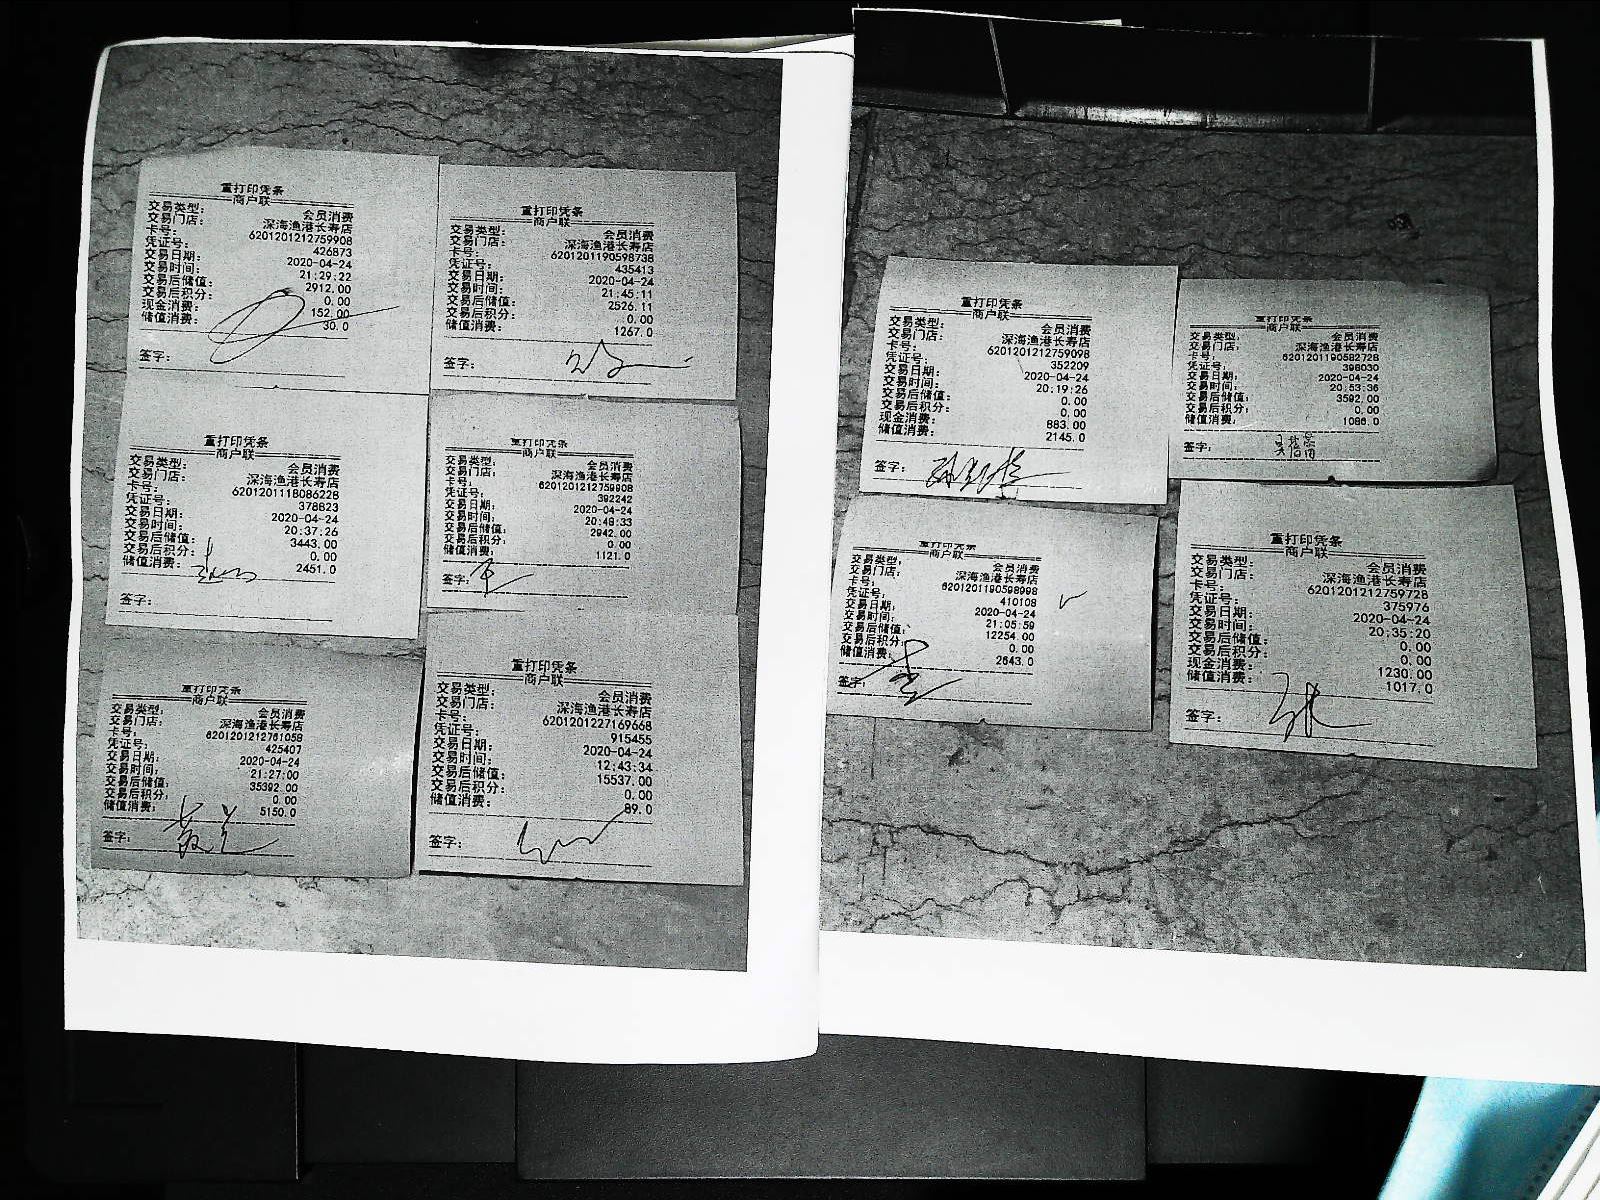 重打印凭条
商户联
交易类型: 会员消费
交易门店: 深海渔港长寿店
卡号: 6201201212759908
凭证号: 426873
交易日期: 2020-04-24
交易时间: 21:29:22
交易后储值: 2912.00
交易后积分: 0.00
现金消费: 152.00
储值消费: 30.0
签字:
重打印凭条
商户联
交易类型: 会员消费
交易门店: 深海渔港长寿店
卡号: 6201201190598738
凭证号: 435413
交易日期: 2020-04-24
交易时间: 21:45:11
交易后储值: 2526.11
交易后积分: 0.00
储值消费: 1267.0
签字:
重打印凭条
商户联
交易类型: 会员消费
交易门店: 深海渔港长寿店
卡号: 6201201118086228
凭证号: 378823
交易日期: 2020-04-24
交易时间: 20:37:26
交易后储值: 3443.00
交易后积分: 0.00
储值消费: 2451.0
签字:
重打印凭条
商户联
交易类型: 会员消费
交易门店: 深海渔港长寿店
卡号: 6201201212759908
凭证号: 392242
交易日期: 2020-04-24
交易时间: 20:48:33
交易后储值: 2942.00
交易后积分: 0.00
储值消费: 1121.0
签字:
重打印凭条
商户联
交易类型: 会员消费
交易门店: 深海渔港长寿店
卡号: 6201201212761058
凭证号: 425407
交易日期: 2020-04-24
交易时间: 21:27:00
交易后储值: 35392.00
交易后积分: 0.00
储值消费: 5150.0
签字:
重打印凭条
商户联
交易类型: 会员消费
交易门店: 深海渔港长寿店
卡号: 6201201227169668
凭证号: 915455
交易日期: 2020-04-24
交易时间: 12:43:34
交易后储值: 15537.00
交易后积分: 0.00
储值消费: 89.0
签字:
重打印凭条
商户联
交易类型: 会员消费
交易门店: 深海渔港长寿店
卡号: 6201201212759098
凭证号: 352209
交易日期: 2020-04-24
交易时间: 20:19:26
交易后储值: 0.00
交易后积分: 0.00
现金消费: 883.00
储值消费: 2145.0
签字:
重打印凭条
商户联
交易类型: 会员消费
交易门店: 深海渔港长寿店
卡号: 6201201190582728
凭证号: 398030
交易日期: 2020-04-24
交易时间: 20:53:36
交易后储值: 3592.00
交易后积分: 0.00
储值消费: 1086.0
签字:
重打印凭条
商户联
交易类型: 会员消费
交易门店: 深海渔港长寿店
卡号: 6201201190598998
凭证号: 410108
交易日期: 2020-04-24
交易时间: 21:05:59
交易后储值: 12254.00
交易后积分: 0.00
储值消费: 2643.0
签字:
重打印凭条
商户联
交易类型: 会员消费
交易门店: 深海渔港长寿店
卡号: 6201201212759728
凭证号: 375976
交易日期: 2020-04-24
交易时间: 20:35:20
交易后储值: 0.00
交易后积分: 0.00
现金消费: 1230.00
储值消费: 1017.0
签字: